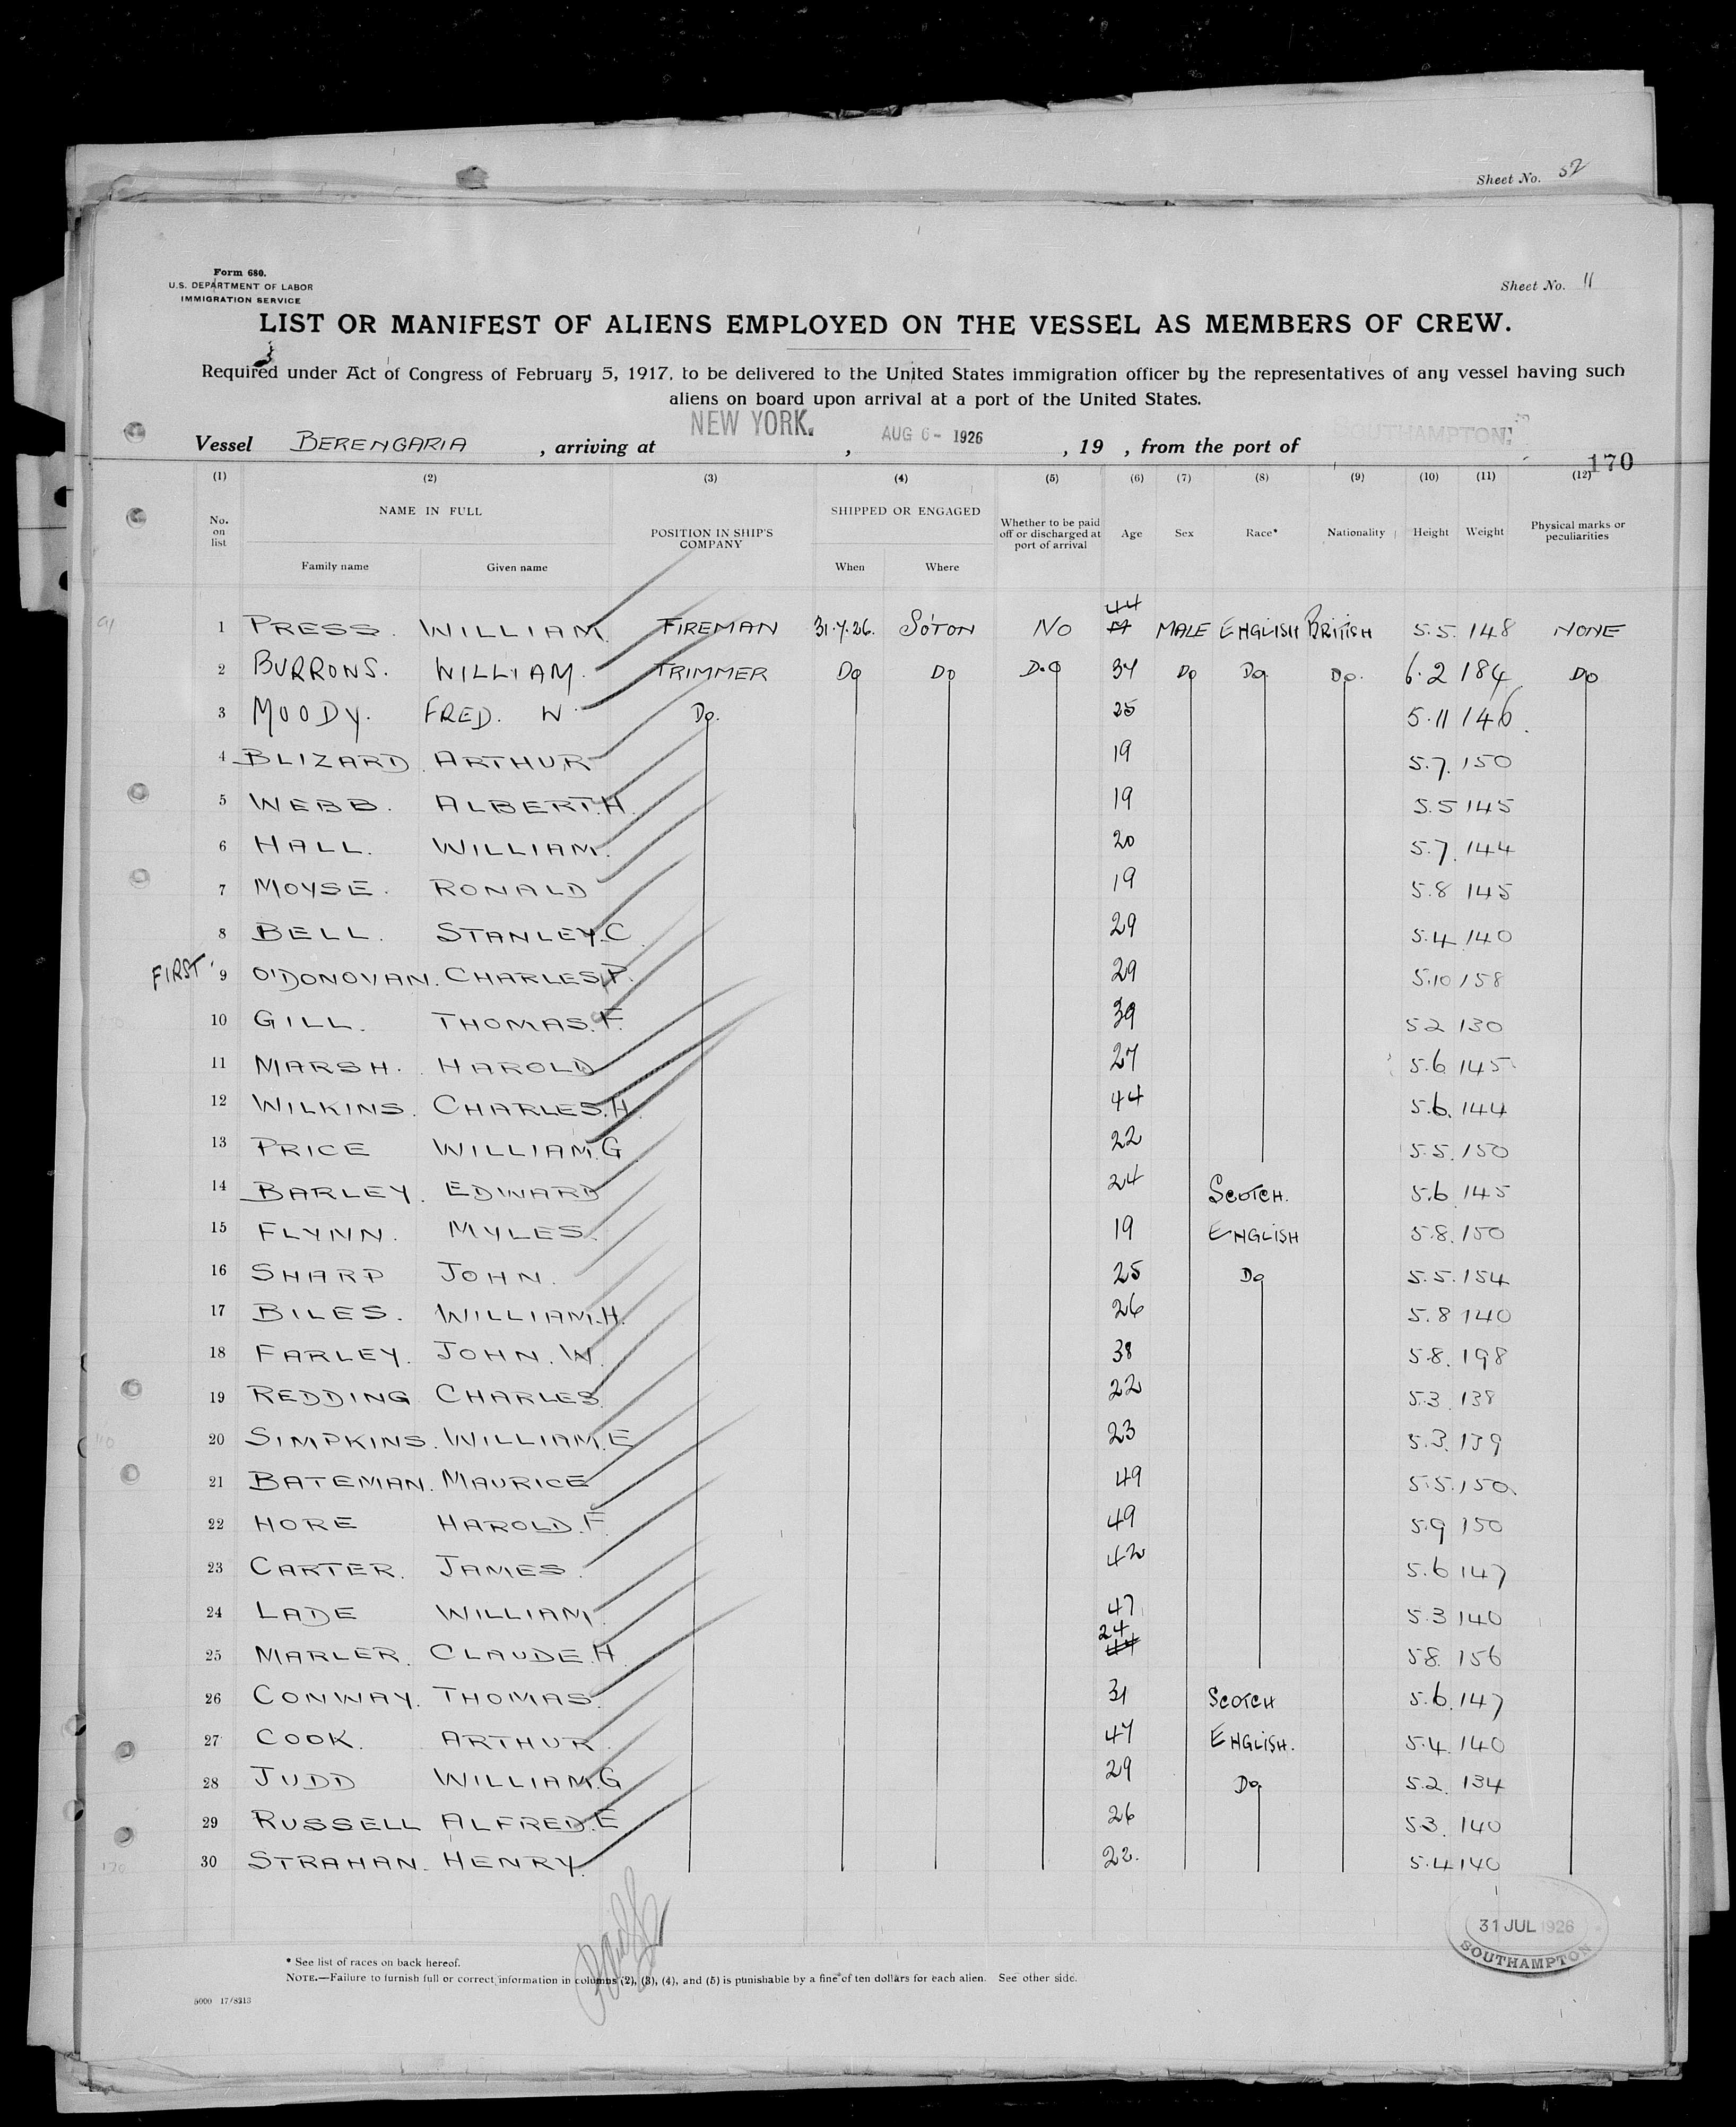 Sheet No. 52
Form 680.
U.S. DEPARTMENT OF LABOR
IMMIGRATION SERVICE
Sheet No. 11
LIST OR MANIFEST OF ALIENS EMPLOYED ON THE VESSEL AS MEMBERS OF CREW.
Required under Act of Congress of February 5, 1917, to be delivered to the United States immigration officer by the representatives of any vessel having such
aliens on board upon arrival at a port of the United States.
Vessel BERENGARIA , arriving at NEW YORK. , AUG 6- 1926 , 19 , from the port of SOUTHAMPTON
170
(1) (2) (3) (4) (5) (6) (7) (8) (9) (10) (11) (12)
No. on list NAME IN FULL Family name Given name POSITION IN SHIP'S COMPANY SHIPPED OR ENGAGED When Where Whether to be paid off or discharged at port of arrival Age Sex Race* Nationality Height Weight Physical marks or peculiarities
1 PRESS. WILLIAM. FIREMAN 31.7.26. SO'TON NO 44 MALE ENGLISH BRITISH 5.5. 148 NONE
2 BURRONS. WILLIAM. TRIMMER Do Do Do 34 Do Do Do. 6.2 184 Do
3 MOODY. FRED. W. Do. 25 5.11 146.
4 BLIZARD. ARTHUR 19 5.7. 150
5 WEBB. ALBERT.H. 19 5.5 145
6 HALL. WILLIAM. 20 5.7. 144
7 MOYSE. RONALD 19 5.8 145
8 BELL. STANLEY.C. 29 5.4 140
FIRST. 9 O'DONOVAN. CHARLES.P. 29 5.10 158
10 GILL. THOMAS.F. 39 5 2 130
11 MARSH. HAROLD 27 5.6 145
12 WILKINS. CHARLES.H. 44 5.6. 144
13 PRICE WILLIAM.G 22 5.5. 150
14 BARLEY. EDWARD 24 SCOTCH. 5.6 145
15 FLYNN. MYLES. 19 ENGLISH 5.8. 150
16 SHARP JOHN. 25 Do 5.5. 154
17 BILES. WILLIAM.H. 26 5.8 140
18 FARLEY. JOHN. W. 38 5.8. 198
19 REDDING CHARLES. 22 5.3. 138
20 SIMPKINS. WILLIAM.E 23 5.3. 139
21 BATEMAN. MAURICE 49 5.5. 150.
22 HORE HAROLD.F. 49 5.9 150
23 CARTER. JAMES. 42 5.6 147
24 LADE WILLIAM. 47 5.3 140
25 MARLER. CLAUDE.H. 24 44 5 8. 156
26 CONWAY. THOMAS. 31 SCOTCH 5.6. 147
27 COOK. ARTHUR. 47 ENGLISH. 5.4. 140
28 JUDD WILLIAM.G 29 Do 5.2. 134
29 RUSSELL ALFRED.E. 26 5.3. 140
30 STRAHAN. HENRY. 22. 5.4 140
31 JUL 1926
SOUTHAMPTON
* See list of races on back hereof.
NOTE.—Failure to furnish full or correct information in columns (2), (3), (4), and (5) is punishable by a fine of ten dollars for each alien. See other side.
5000 17/8213